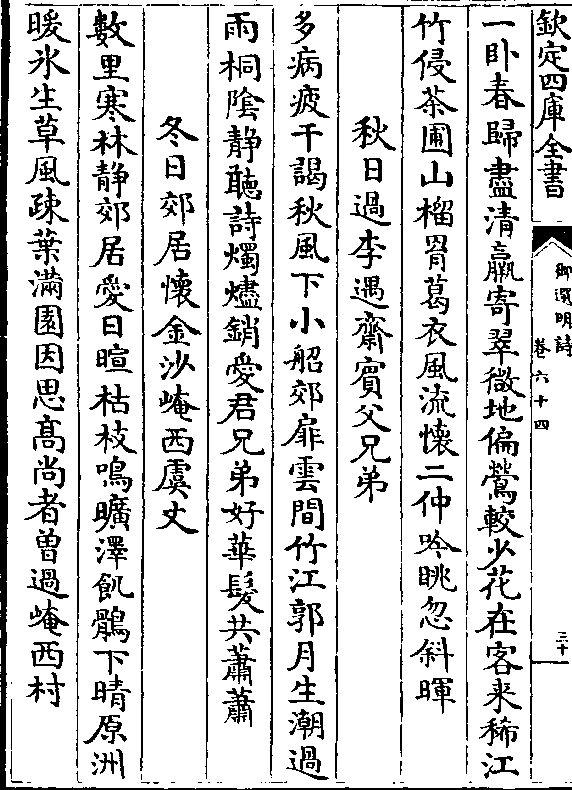 欽定四庫全書
御選明詩
卷六十四
三十
一卧春歸盡清羸寄翠微地偏鶯較少花在客来稀江
竹侵茶圃山榴罥葛衣風流懷二仲吟眺忽斜暉
秋日過李遇齋賓父兄弟
多病疲干謁秋風下小船郊扉雲間竹江郭月生潮過
雨桐陰静聽詩燭燼銷愛君兄弟好華髮共蕭蕭
冬日郊居懷金沙崦西虞丈
數里寒林静郊居愛日暄枯枝鳴曠澤飢鶻下晴原洲
暖氷生草風疎葉滿園因思髙尚者曽過崦西村